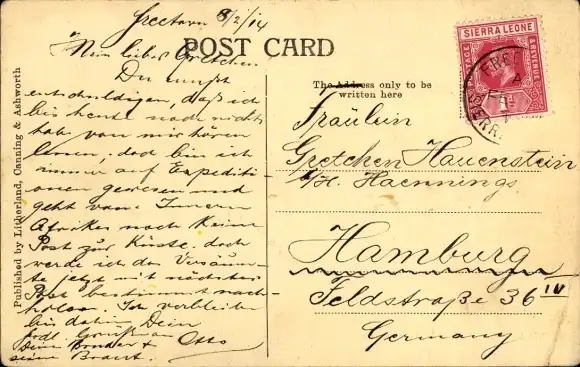 Freetown 8/2/14
POST CARD
Mein liebes Gretchen!
Du mußt
entschuldigen, daß ich
bis heute noch nichts
habe von mir hören
lassen, doch bin ich
immer auf Expediti-
onen gewesen und
geht vom Innern
Afrikas noch keine
Post zur Küste. doch
werde ich das Versäum-
te jetzt mit nächster
Post bestimmt nach-
holen. Ich verbleibe
bis dahin Dein
Otto
Dein Bruder +
seine Braut.
Published by Litherland, Canning & Ashworth
The Address only to be
written here
SIERRA LEONE
POSTAGE
& REVENUE
1D
Fräulein
Gretchen Hauenstein
b/H. Haennings
Hamburg
Feldstraße 36 IV
Germany